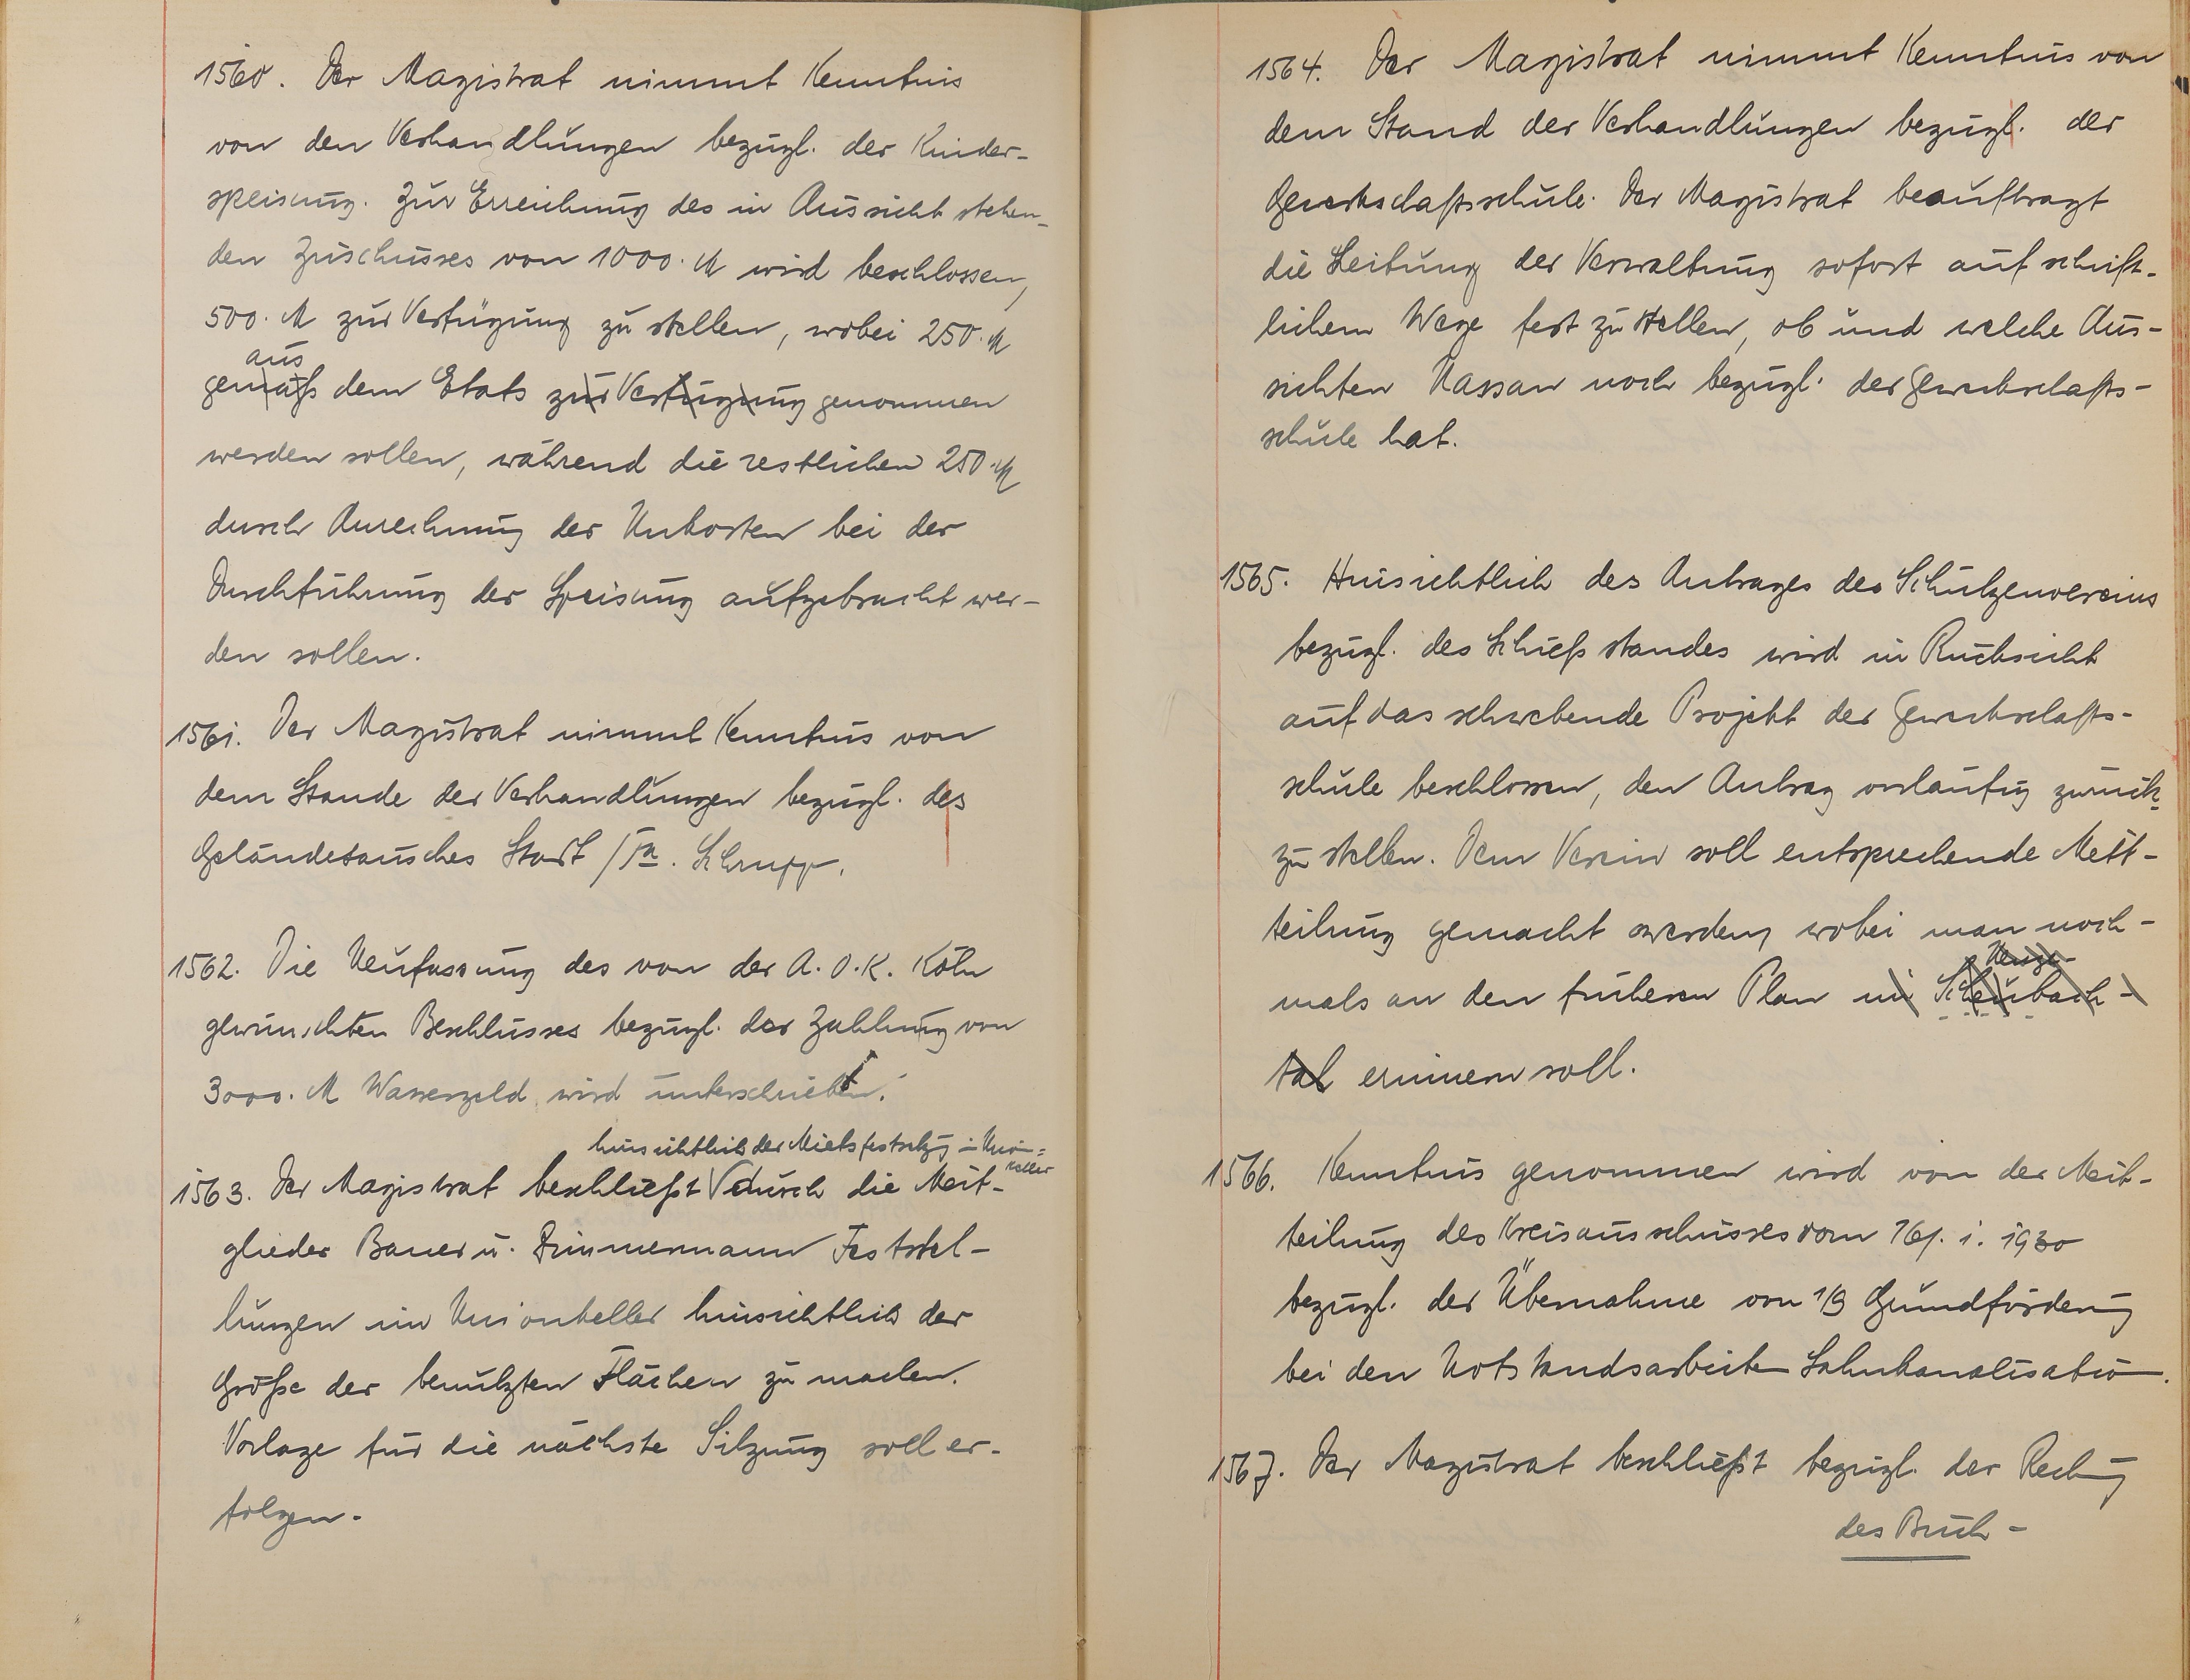 1560. Der Magistrat nimmt Kenntnis
von den Verhandlungen bezügl. der Kinder-
speisung. Zur Erreichung des in Aussicht stehen-
den Zuschusses von 1000. M wird beschlossen,
500. M zur Verfügung zu stellen, wobei 250. M
aus
gemäß dem Etats zur Verfügung genommen
werden sollen, während die restlichen 250. M
durch Anrechnung der Unkosten bei der
Durchführung der Speisung aufgebracht wer-
den sollen.
1561. Der Magistrat nimmt Kenntnis von
dem Stande der Verhandlungen bezügl. des
Geländetausches Stadt / Fa. Schrupp.
1562. Die Neufassung des von der A.O.K. Köln
gewünschten Beschlusses bezügl. der Zahlung von
3000. M Wassergeld wird unterschrieben.
hinsichtlich der Mietsfestsetzg i. Union=
keller
1563. Der Magistrat beschließt durch die Mit-
glieder Bauer u. Zimmermann Feststel-
lungen im Unionkeller hinsichtlich der
Größe der benutzten Flächen zu machen.
Vorlage für die nächste Sitzung soll er-
folgen.
1564. Der Magistrat nimmt Kenntnis von
dem Stand der Verhandlungen bezügl. der
Gewerkschaftsschule. Der Magistrat beauftragt
die Leitung der Verwaltung sofort auf schrift-
lichem Wege fest zu stellen, ob und welche Aus-
sichten Nassau noch bezügl. der Gewerkschafts-
schule hat.
1565. Hinsichtlich des Antrages des Schützenvereins
bezügl. des Schießstandes wird in Rücksicht
auf das schwebende Projekt der Gewerkschafts-
schule beschlossen, den Antrag vorläufig zurück-
zu stellen. Dem Verein soll entsprechende Mitt-
teilung gemacht werden, wobei man noch-
mals an den früheren Plan im Scheubach-
tal erinnern soll.
1566. Kenntnis genommen wird von der Mit-
teilung des Kreisausschusses vom 1930
bezügl. der Übernahme von 1/9 Grundförderung
bei den Notstandsarbeiten Lahnkanalisation.
1567. Der Magistrat beschließt bezügl. der Rechng
des Buch-